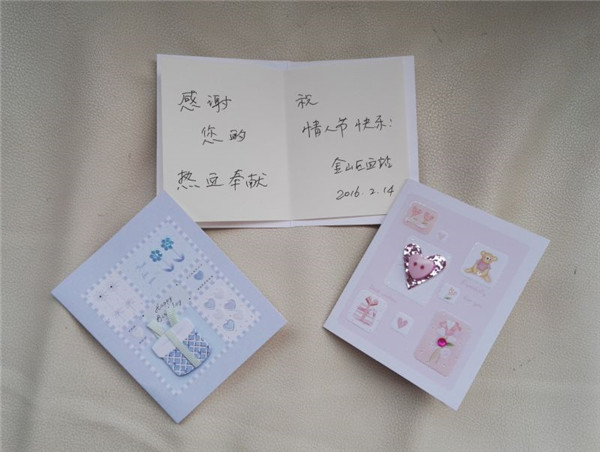 感谢
您的
热血奉献
祝
情人节快乐!
金山区血站
2016.2.14
Happy